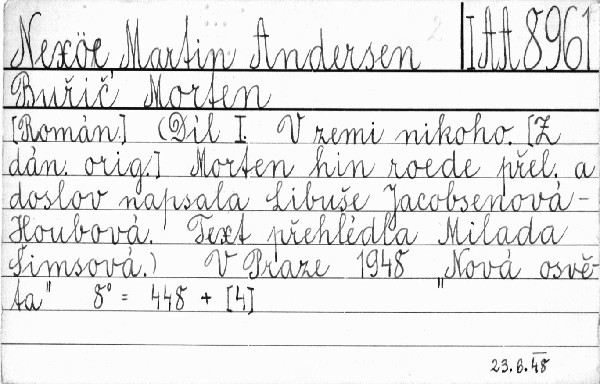 Nexöe, Martin Andersen I AA 8961
Buřič Morten
[Román.] (Díl I. V zemi nikoho. [Z
dán. orig.] Morten hin roede přel. a
doslov napsala Libuše Jacobsenová-
Houbová. Text přehlédla Milada
Šimsová.) V Praze 1948 "Nová osvě-
ta" 8° = 448 + [4]
23.8.48